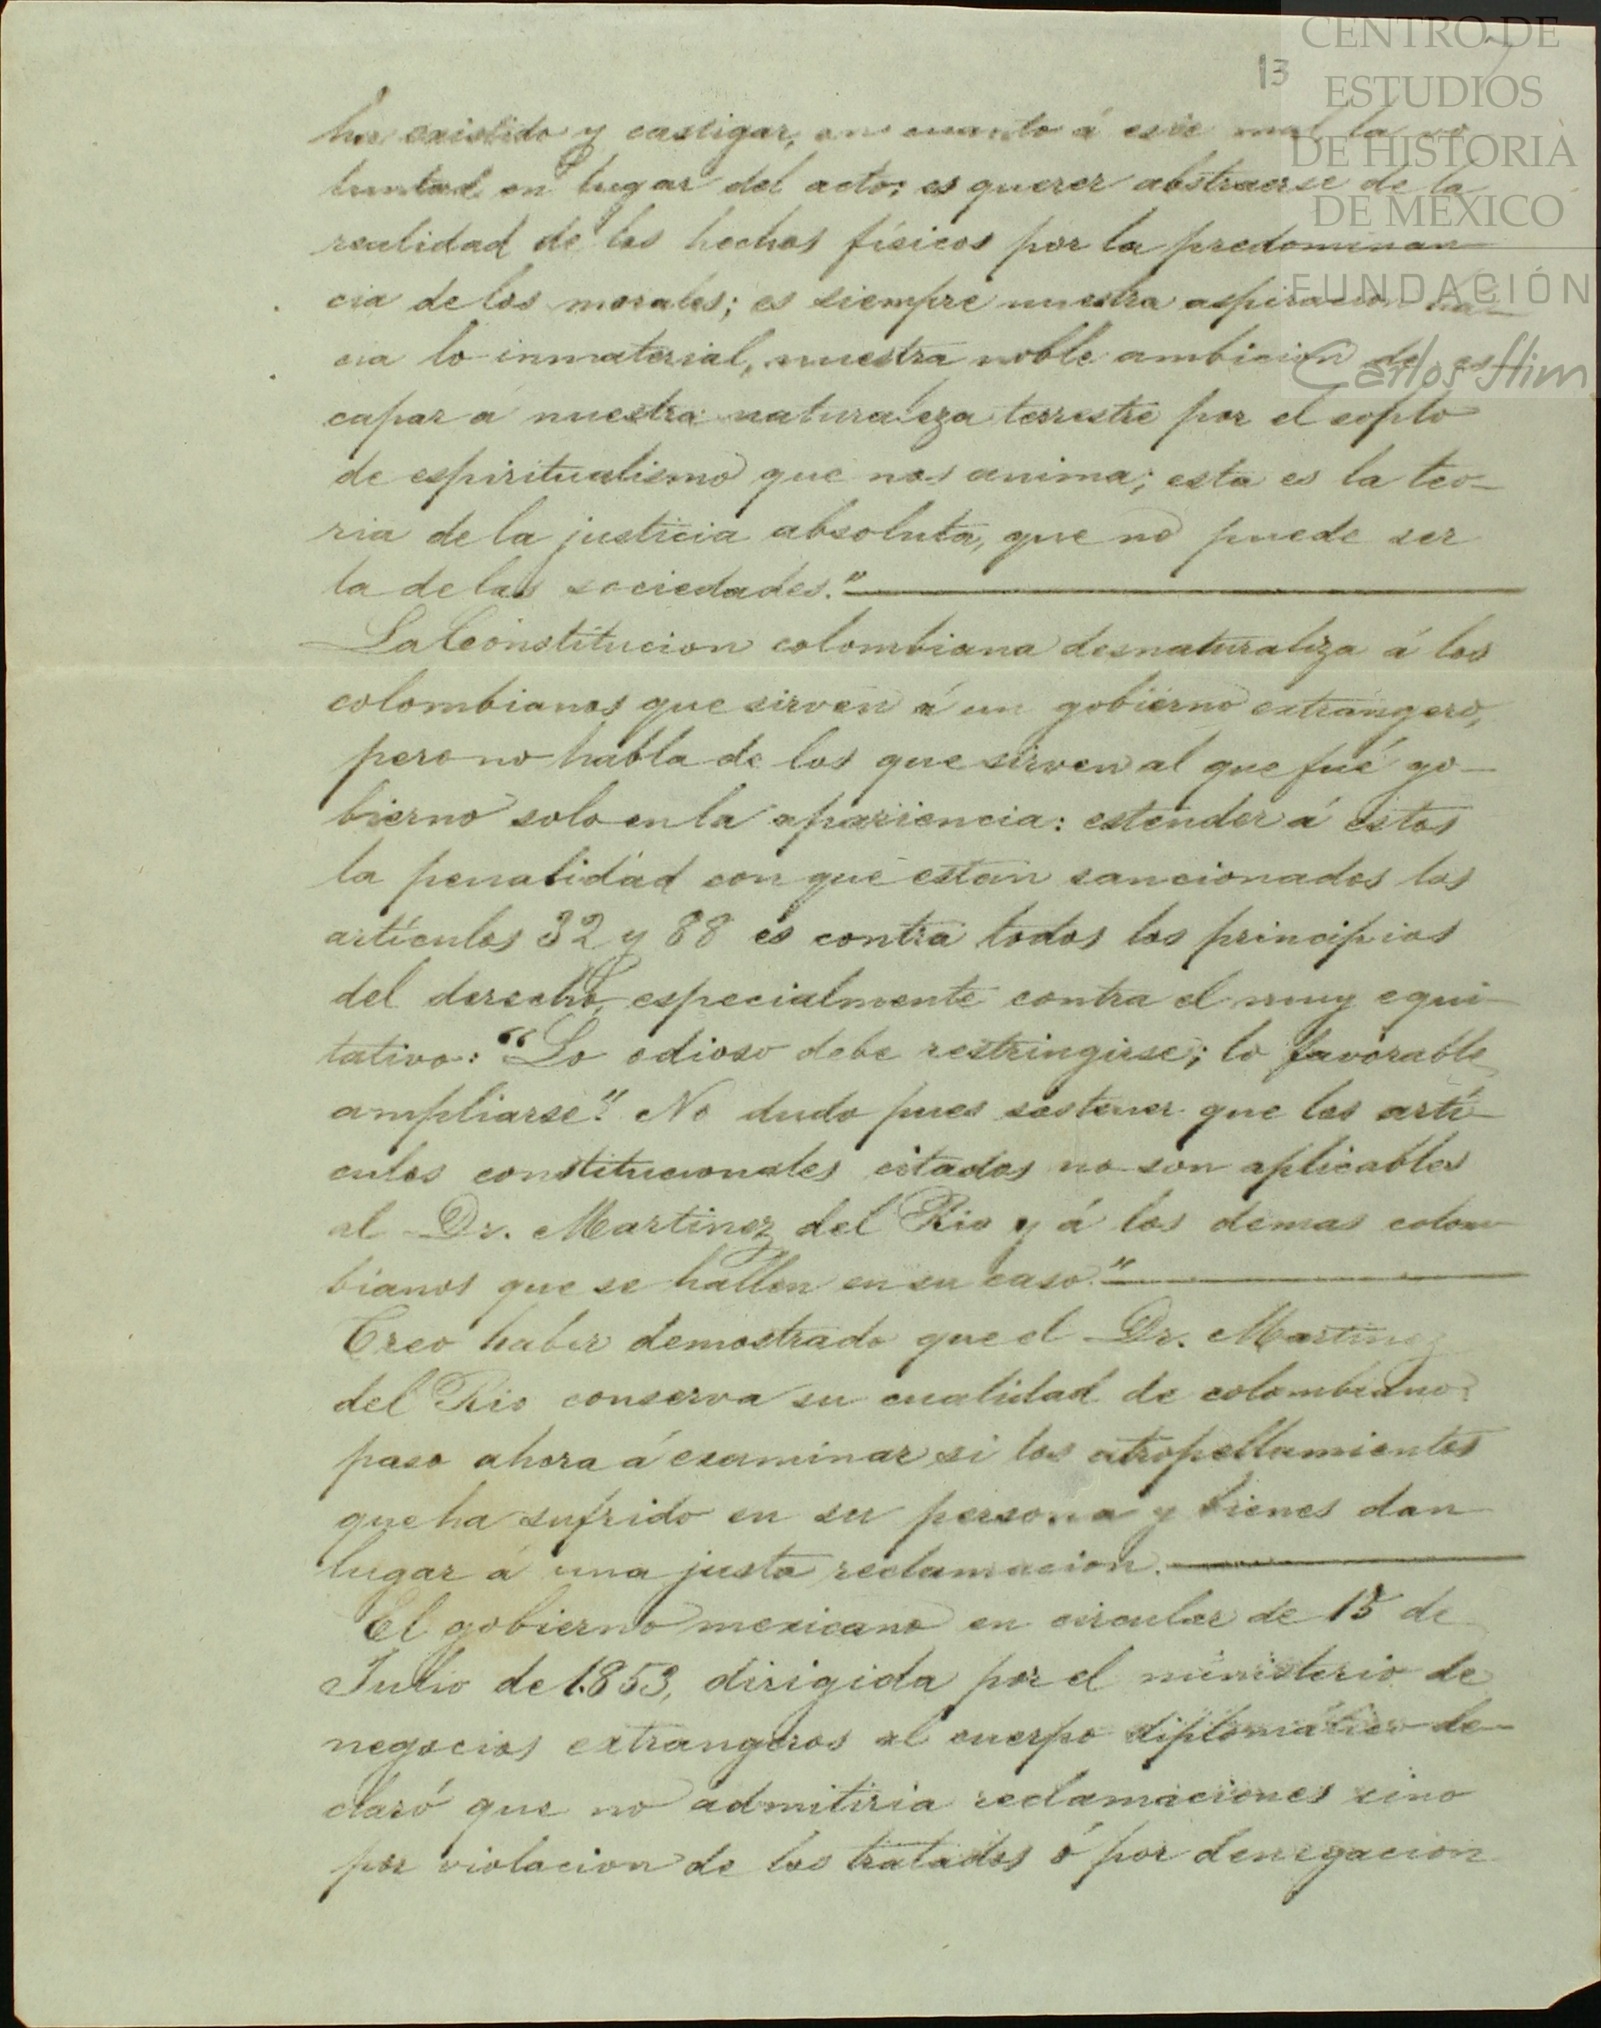 CENTRO DE
ESTUDIOS
DE HISTORIA
DE MÉXICO
FUNDACIÓN
Carlos Slim
13
ha existido y castigar, en cuanto á este mal la vo
luntad en lugar del acto; es querer abstraerse de la
realidad de los hechos físicos por la predominan
cia de los morales; es siempre nuestra aspiracion há-
cia lo inmaterial, nuestra noble ambicion de es-
capar á nuestra naturaleza terrestre por el soplo
de espiritualismo que nos anima; esta es la teo-
ria de la justicia absoluta, que no puede ser
la de las sociedades."
La Constitucion colombiana desnaturaliza á los
colombianos que sirven á un gobierno extrangero,
pero no habla de los que sirven al que fué go-
bierno solo en la apariencia: estender á estos
la penalidad con que estan sancionados los
artículos 32 y 88 es contra todos los principios
del derecho, especialmente contra el muy equi-
tativo: "Lo odioso debe restringirse; lo favorable
ampliarse". No dudo pues sostener que los artí-
culos constitucionales citados no son aplicables
al Dr. Martinez del Rio y á los demas colom-
bianos que se hallen en su caso."
Creo haber demostrado que el Dr. Martinez
del Rio conserva su cualidad de colombiano:
paso ahora á examinar si los atropellamientos
que ha sufrido en su persona y bienes dan
lugar á una justa reclamacion.
El gobierno mexicano en circular de 15 de
Julio de 1.853, dirigida por el ministerio de
negocios extrangeros al cuerpo diplomático de-
claró que no admitiria reclamaciones sino
por violacion de los tratados ó por denegacion